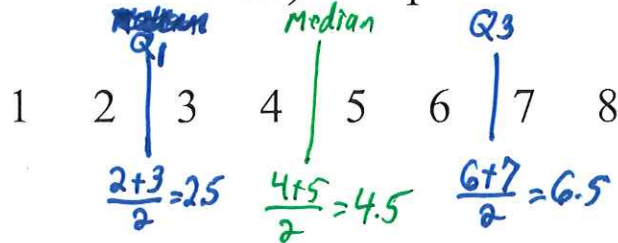 Median Q3
Q1
1 2 3 4 5 6 7 8
2+3/2=2.5 4+5/2=4.5 6+7/2=6.5